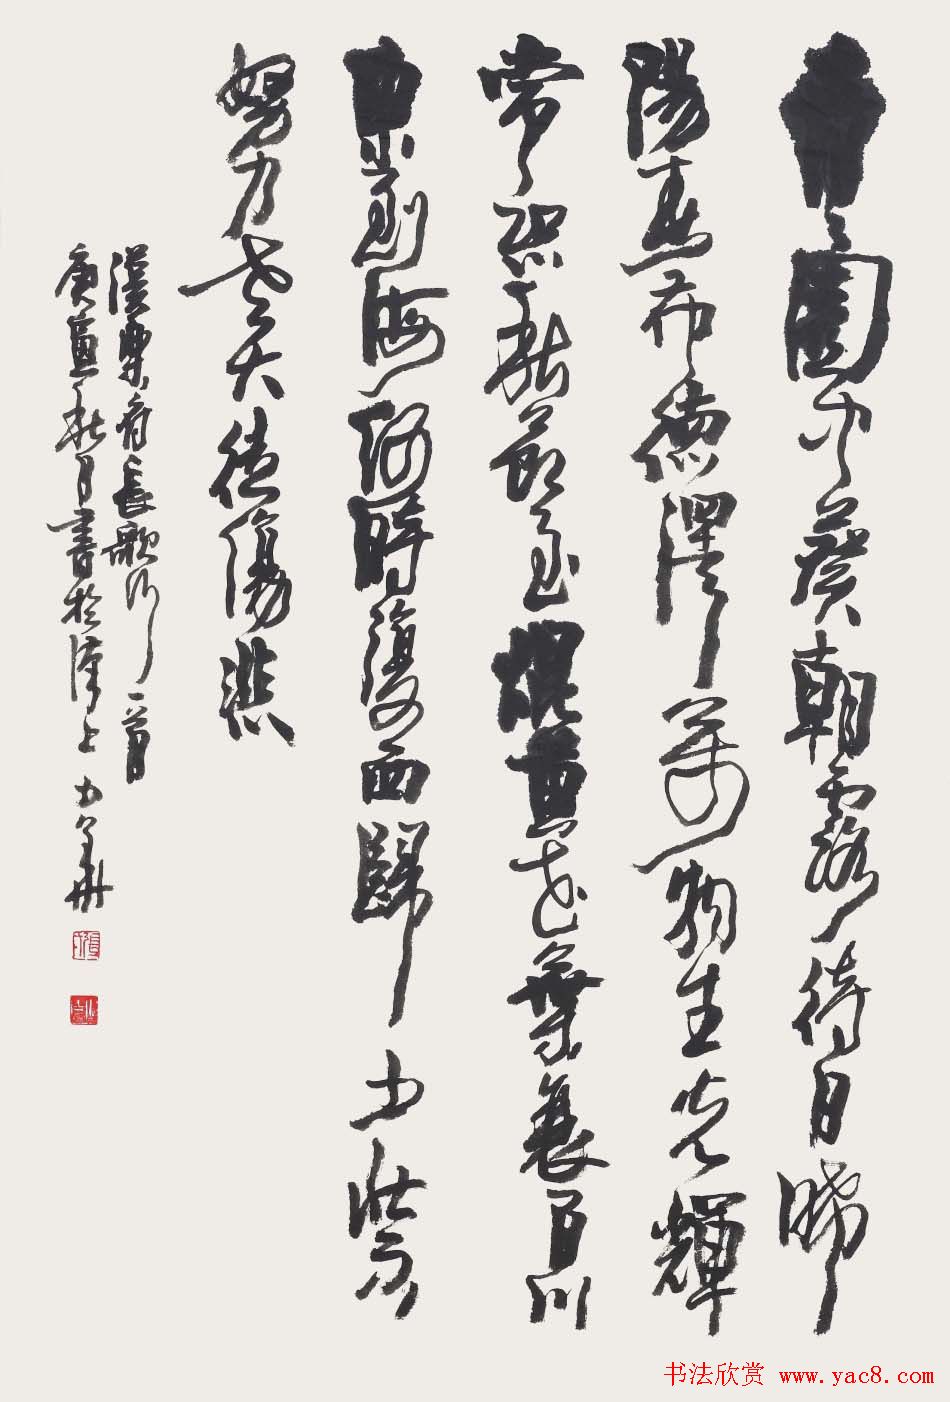 青青園中葵朝露待日晞
陽春布德澤萬物生光輝
常恐秋節至焜黃花葉衰百川
東到海何時復西歸少壯不
努力老大徒傷悲
漢樂府長歌行一首
庚寅秋月書於上少華
书法欣赏 www.yac8.com